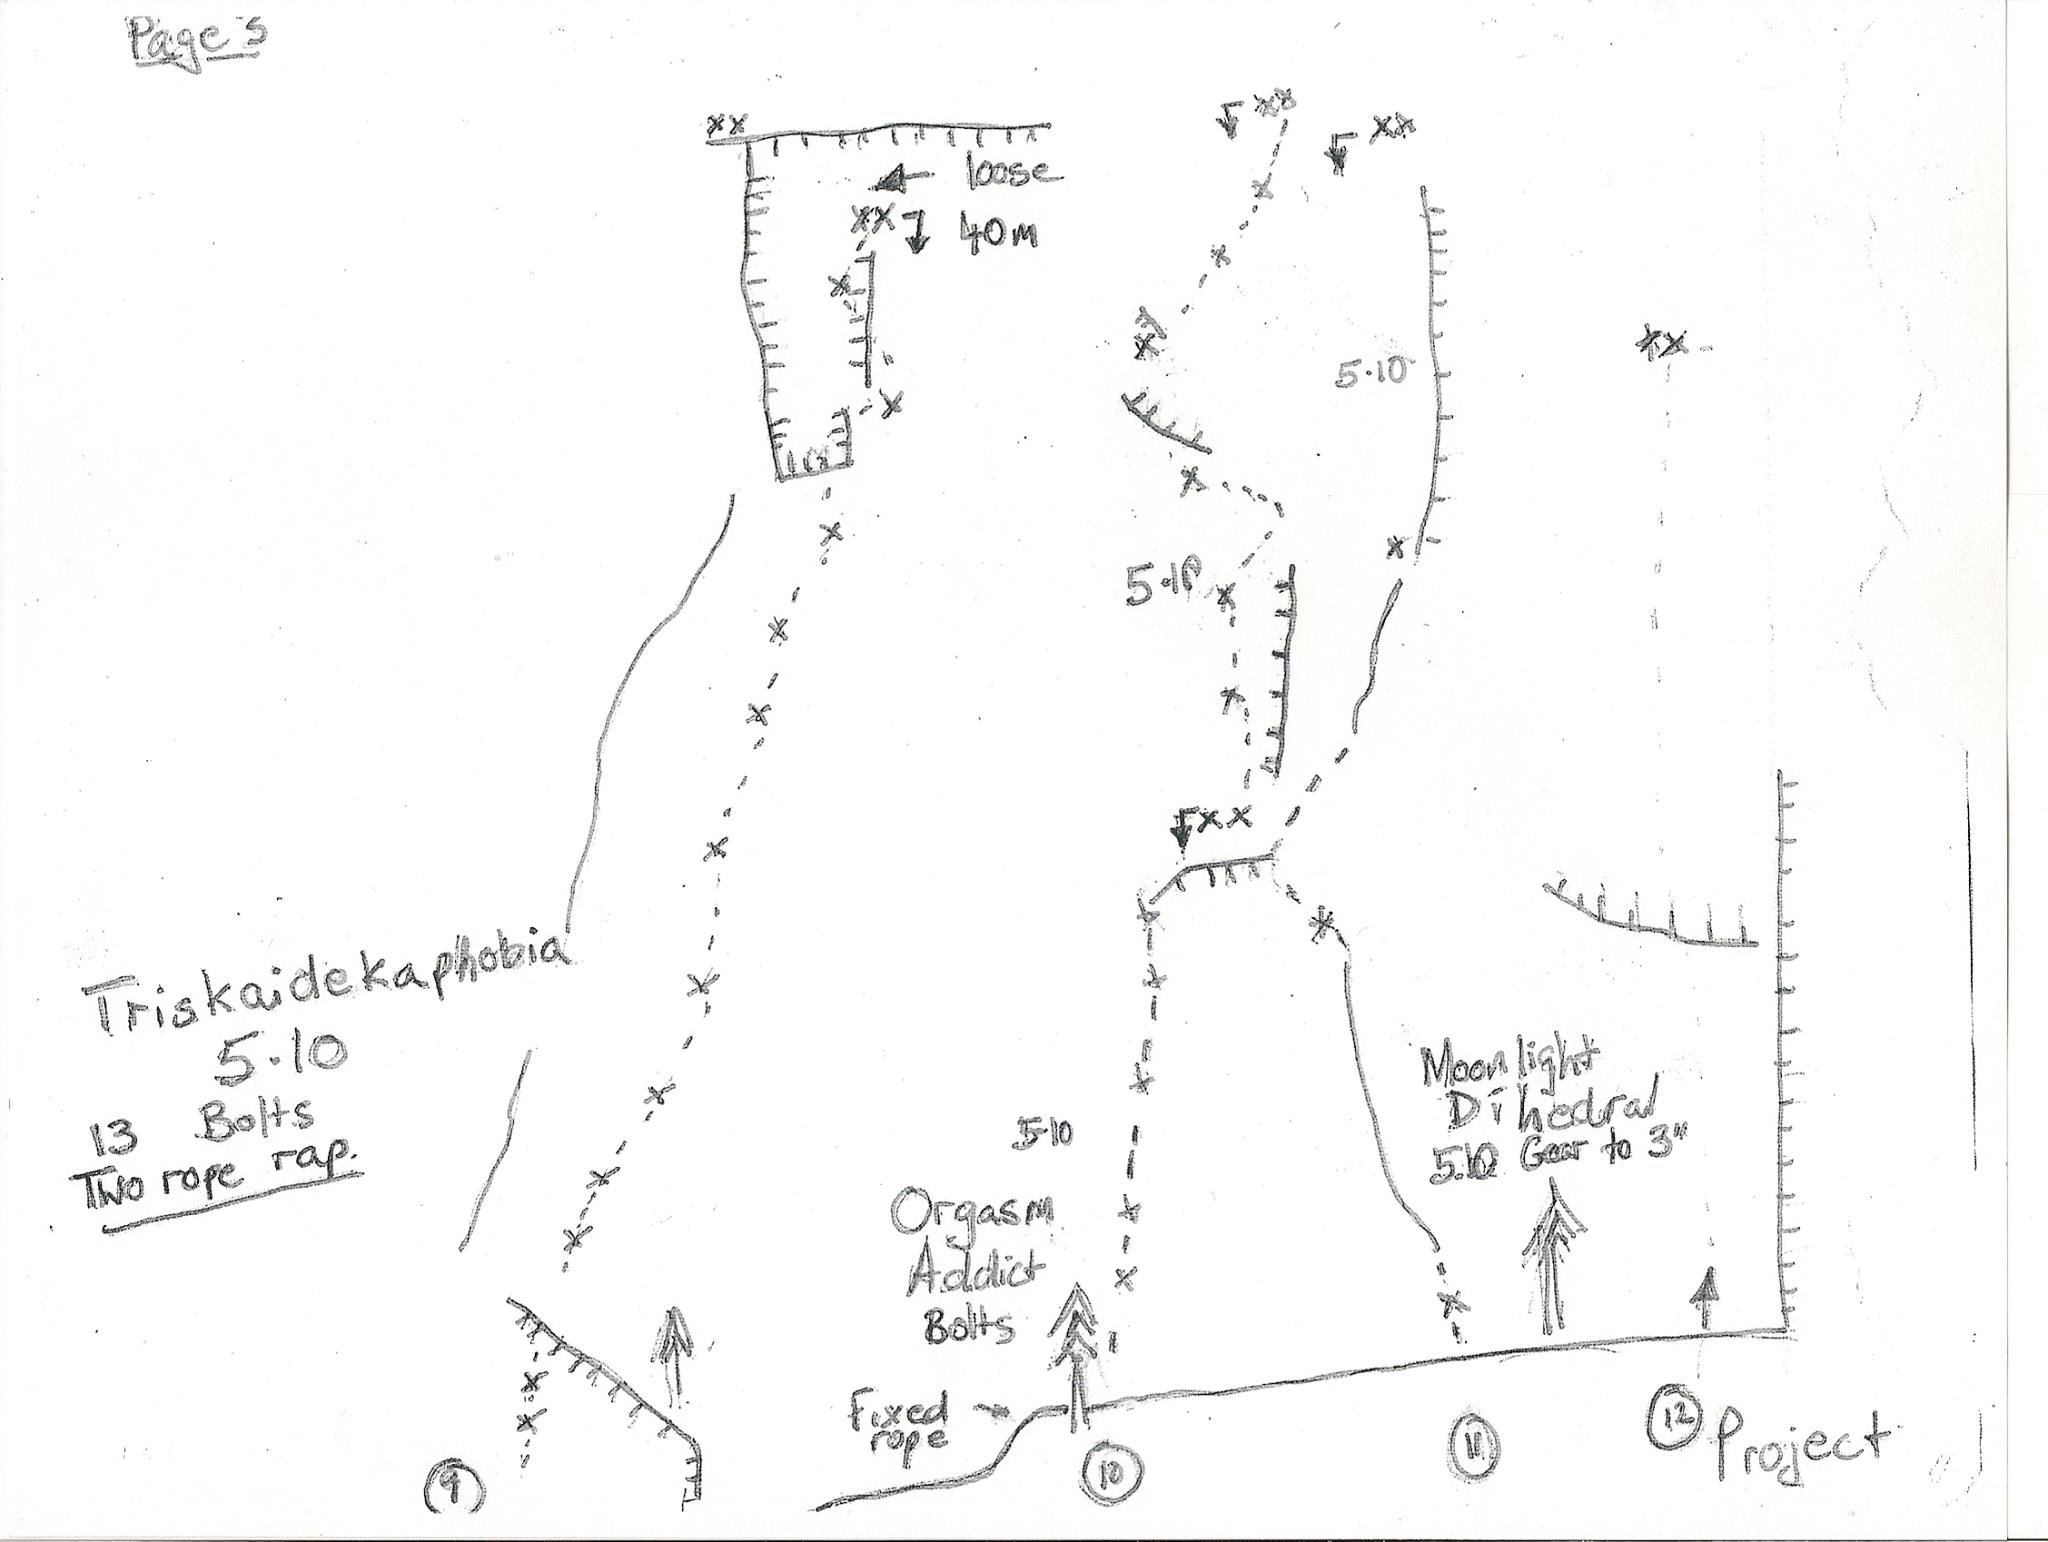 Page 5
xx
loose
xx
40m
xx
xx
xx
5.10
xx
5.10
xx
Triskaidekaphobia
5.10
13 Bolts
Two rope rap.
5.10
Orgasm
Addict
Bolts
Moonlight
Dihedral
5.10 Gear to 3"
Fixed
rope
9
10
11
12 Project